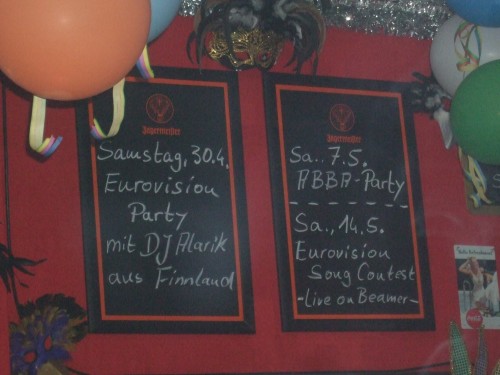 Jägermeister
Samstag, 30.4.
Eurovision
Party
mit DJ Alarik
aus Finnland
Jägermeister
Sa., 7.5.
ABBA-Party
Sa., 14.5.
Eurovision
Song Contest
-Live on Beamer-